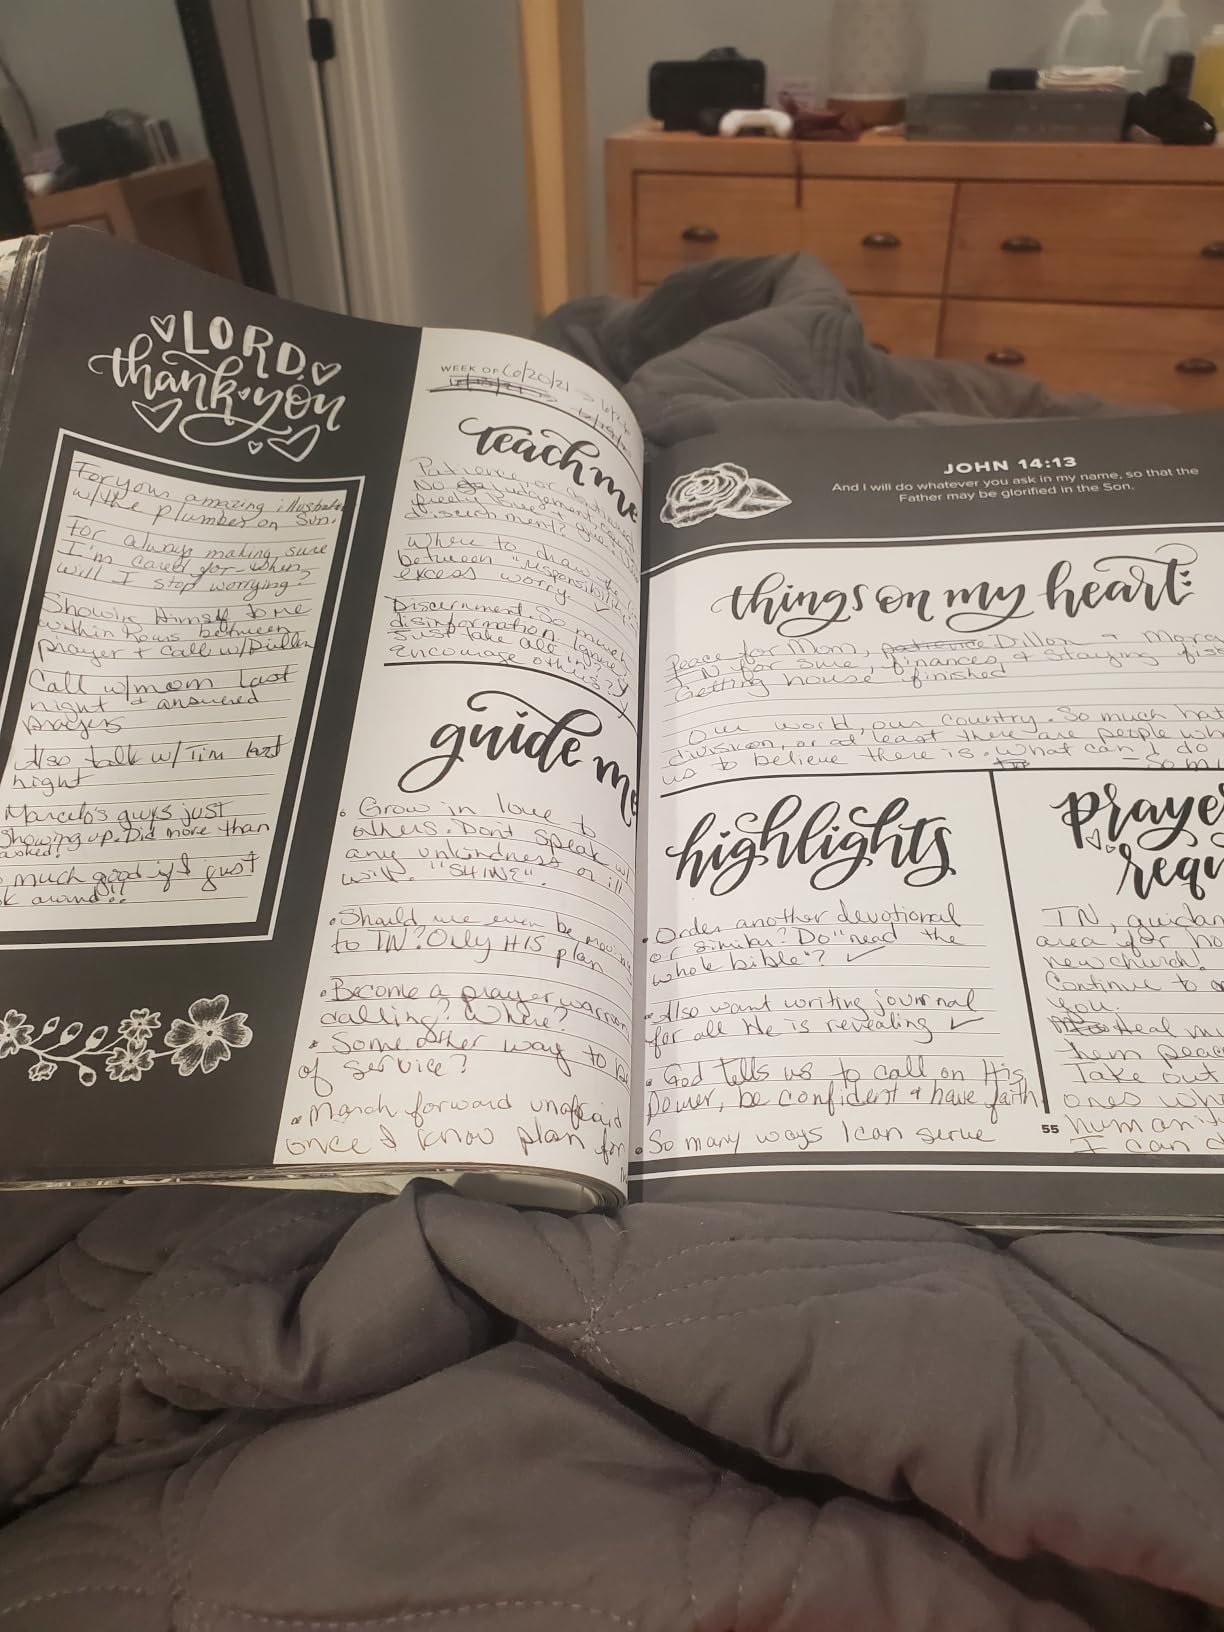 LORD,
thank you
For your amazing
w/the plumber on Sun.
For always making sure
I'm cared for - when
will I stop worrying?
Showing Himself to me
within hours between
prayer + call w/Dillon
Call w/mom last
night + answered
prayers
Also talk w/Tim last
night
Marcelo's guys just
showing up. Did more than
asked!
much good if I just
around!!
WEEK OF 6/20/21
teach me
Patience
No judgement,
discernment?
Where to draw the
between "responsibility
excess worry
Discernment. So much
disinformation. Ignore,
Just take all in,
encourage others?
guide me
• Grow in love to
others. Don't speak
any unkindness or ill
will. "SHINE".
• Should we even be moving
to TN? Only HIS plan
• Become a prayer warrior
calling? Where?
• Some other way to be
of service?
• March forward unafraid
once I know plan for
JOHN 14:13
And I will do whatever you ask in my name, so that the
Father may be glorified in the Son.
things on my heart:
Peace for Mom, patience Dillon +
TN for sure, finances, + staying
Getting house finished
Our world, our country. So much
division, or at least there are people
us to believe there is. What can I do
highlights
• Order another devotional
or similar? Do "read the
whole bible"? ✓
• Also want writing journal
for all He is revealing ✓
• God tells us to call on His
Power, be confident + have faith
• So many ways I can serve
TN,
area for
new church!
Continue to
you.
Heal
them peace
Take out
ones
I can
55